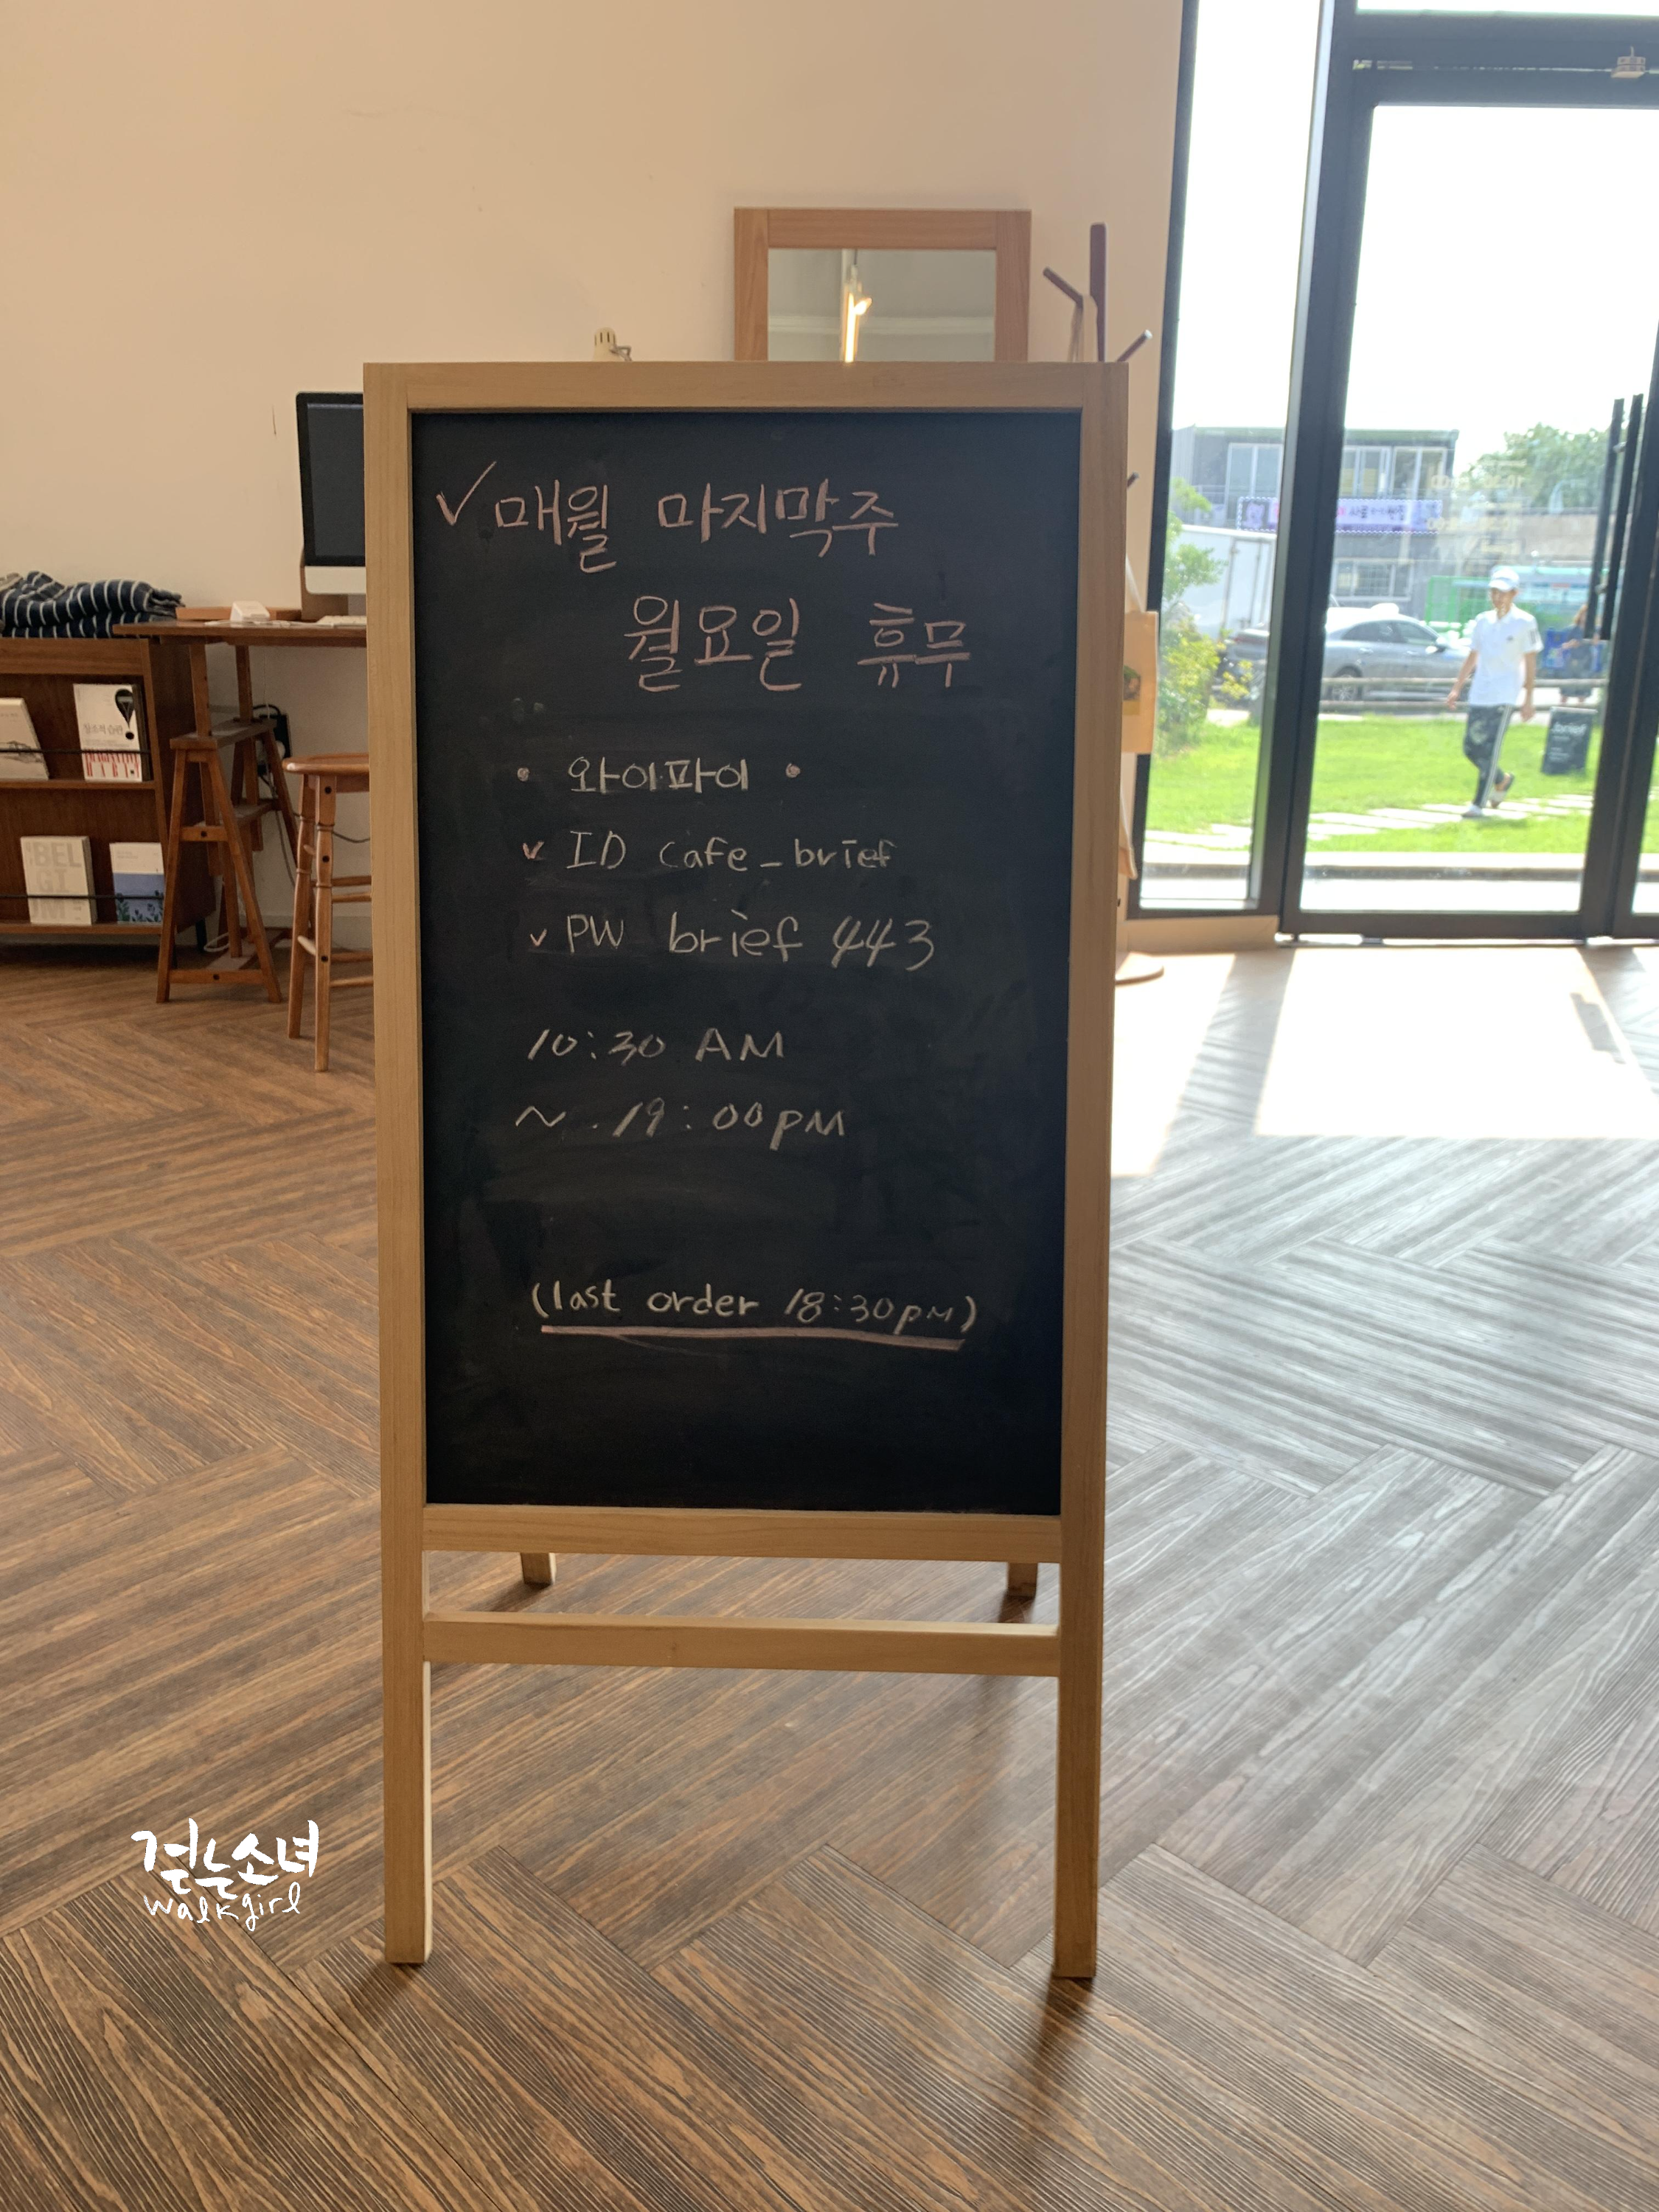 ✓매월 마지막주
월요일 휴무
• 와이파이 •
✓ ID cafe_brief
✓ PW brief 443
10:30 AM
~ 19:00PM
(last order 18:30PM)
걷는소녀
walkgirl